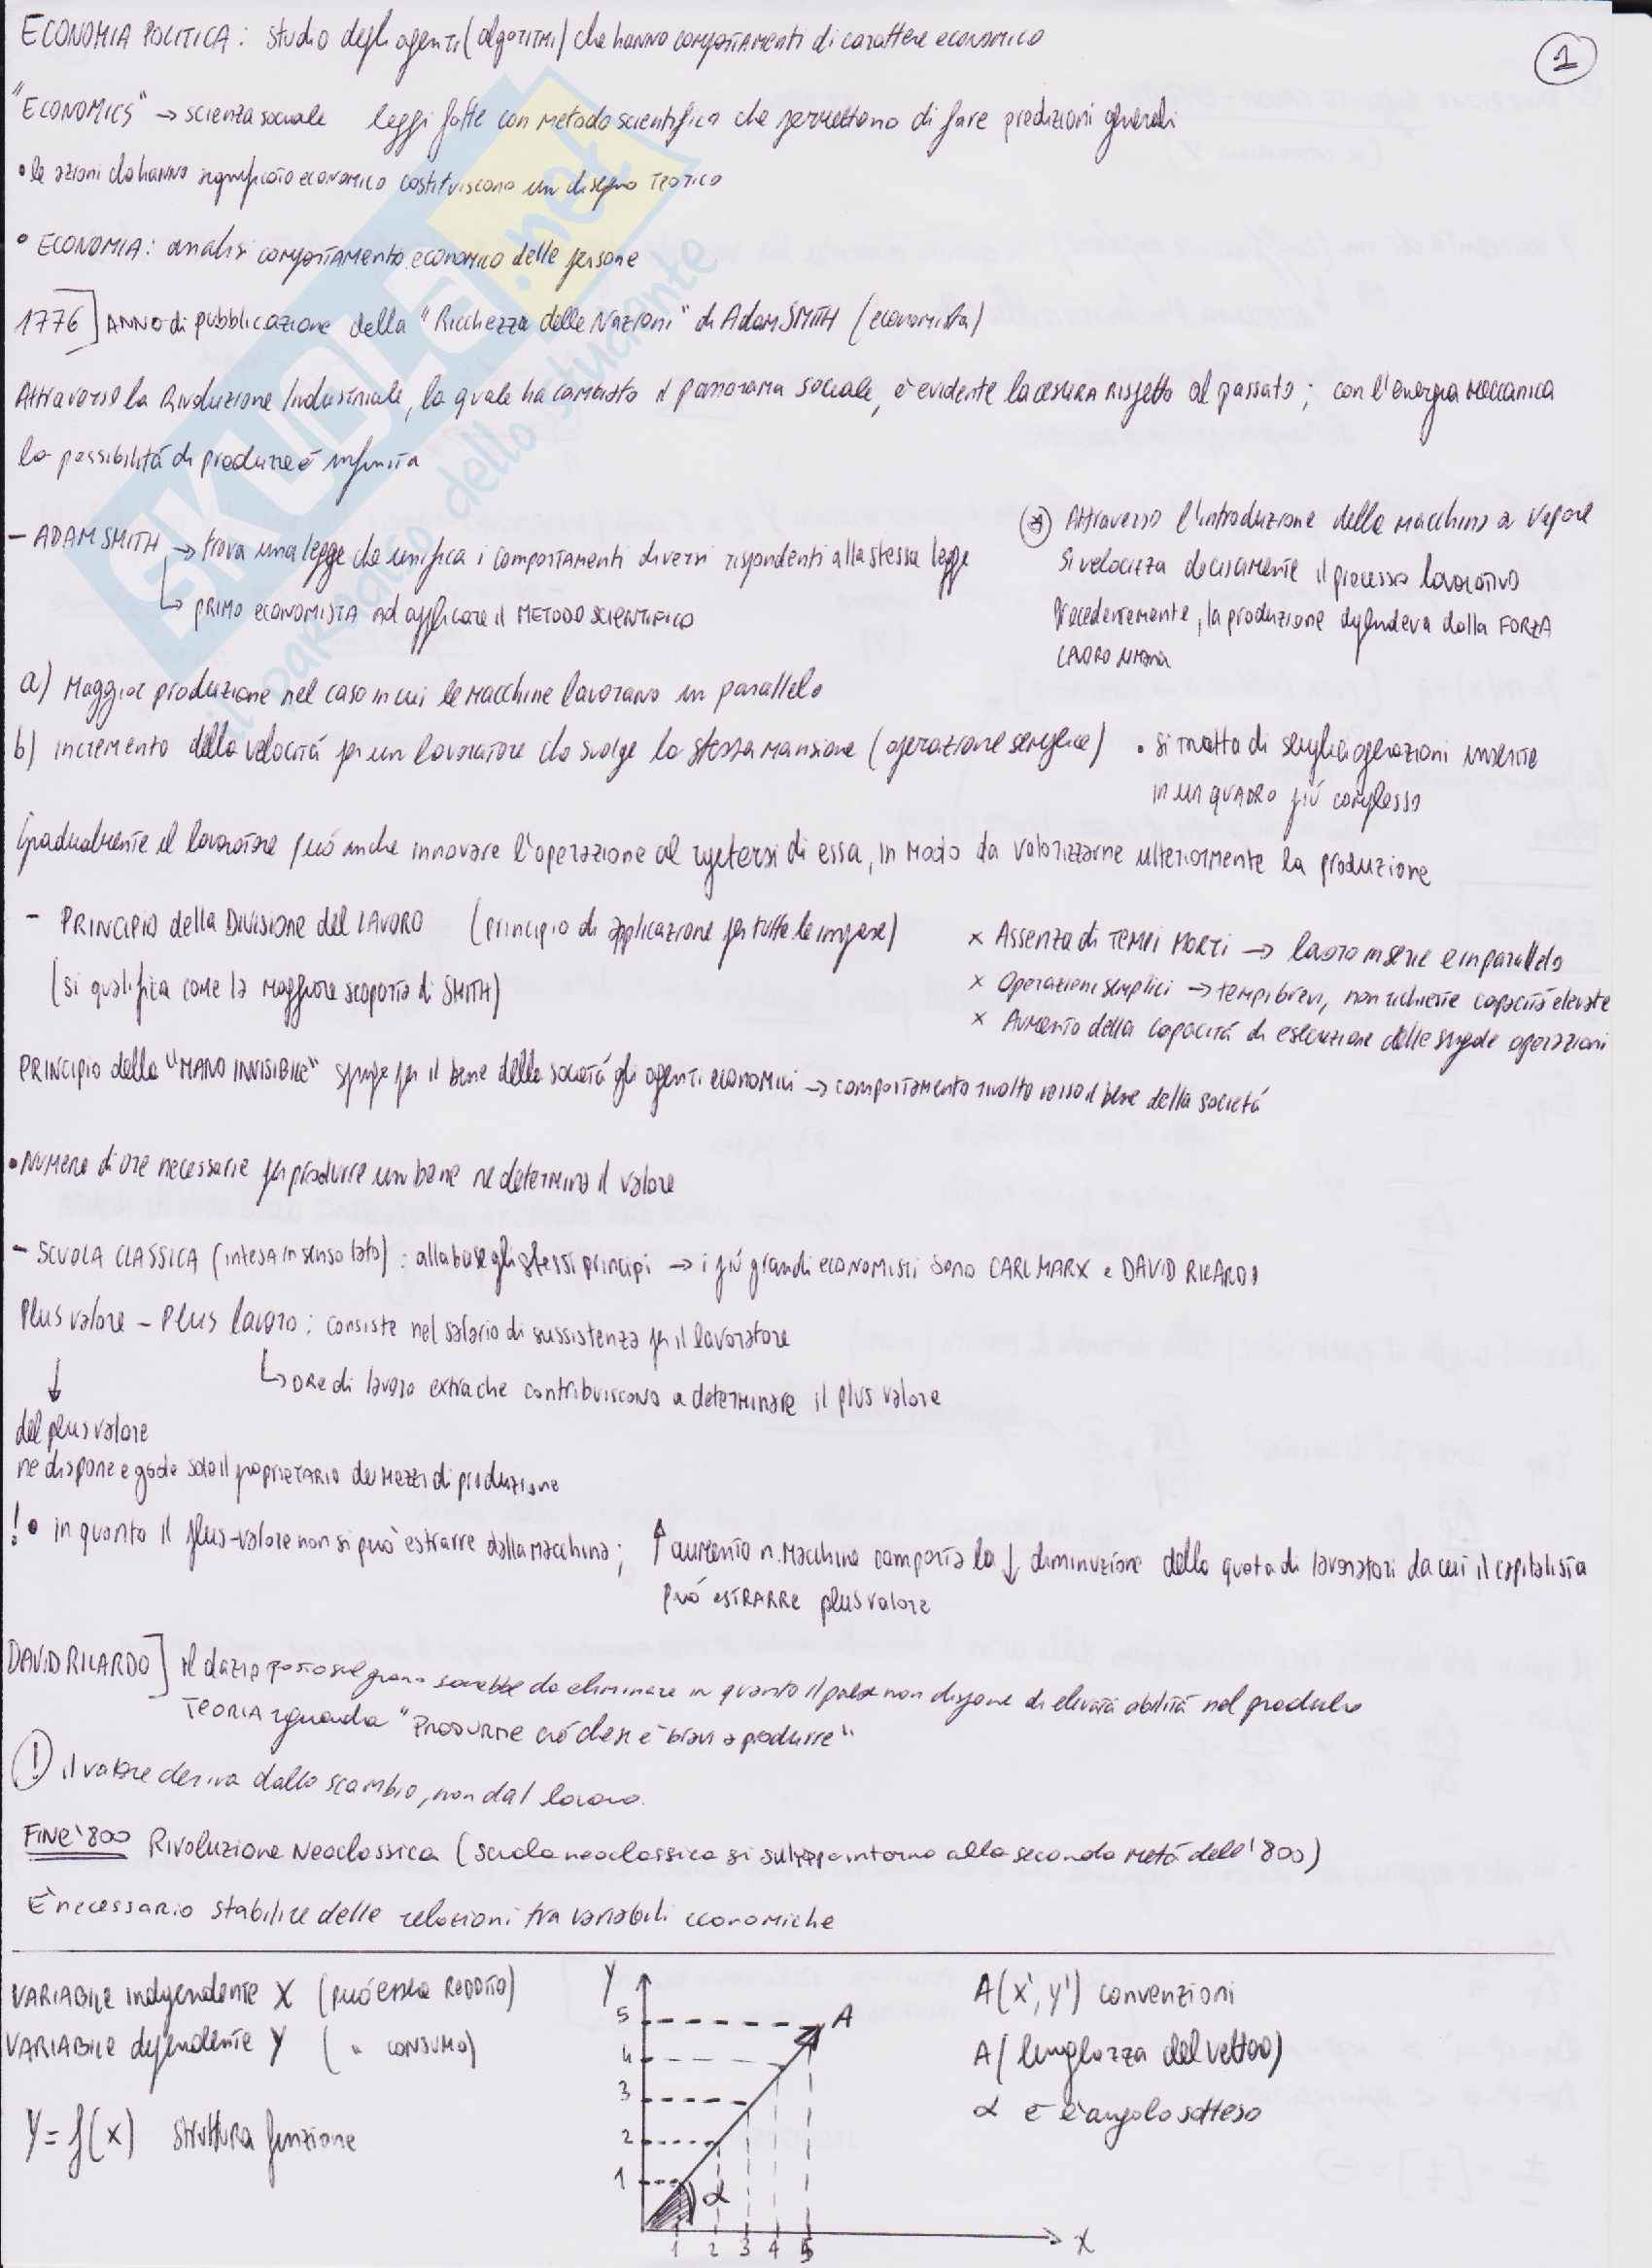 1
ECONOMIA POLITICA: studio degli agenti (algoritmi) che hanno comportamenti di carattere economico
"ECONOMICS" → scienza sociale leggi fatte con metodo scientifico che permettono di fare predizioni generali
• le azioni che hanno significato economico costituiscono un disegno teorico
• ECONOMIA: analisi comportamento economico delle persone
1776] ANNO di pubblicazione della "Ricchezza delle Nazioni" di Adam SMITH (economista)
Attraverso la Rivoluzione Industriale, la quale ha cambiato il panorama sociale, è evidente la cesura rispetto al passato; con l'energia meccanica
la possibilità di produrre è infinita
- ADAM SMITH → trova una legge che unifica i comportamenti diversi rispondenti alla stessa legge
↳ PRIMO ECONOMISTA ad applicare il METODO SCIENTIFICO
Attraverso l'introduzione della macchina a vapore
si velocizza decisamente il processo lavorativo
Precedentemente, la produzione dipendeva dalla FORZA
LAVORO umana
a) Maggior produzione nel caso in cui le macchine lavorano in parallelo
b) incremento della velocità per un lavoratore che svolge la stessa mansione (operazione semplice) • si tratta di semplici operazioni inserite
in un quadro più complesso
Gradualmente il lavoratore può anche innovare l'operazione al ripetersi di essa, in modo da valorizzarne ulteriormente la produzione
- PRINCIPIO della DIVISIONE del LAVORO (principio di applicazione per tutte le imprese)
(si qualifica come la maggiore scoperta di SMITH)
x Assenza di TEMPI MORTI → lavoro in serie e in parallelo
x Operazioni semplici → tempi brevi, non richieste capacità elevate
x Aumento della capacità di esecuzione delle singole operazioni
PRINCIPIO della "MANO INVISIBILE" spinge per il bene della società gli agenti economici → comportamento rivolto verso il bene della società
• Numero di ore necessarie per produrre un bene ne determina il valore
- SCUOLA CLASSICA (intesa in senso lato): alla base gli stessi principi → i più grandi economisti sono CARL MARX e DAVID RICARDO
Plus valore - Plus lavoro: consiste nel salario di sussistenza per il lavoratore
↳ ORE di lavoro extra che contribuiscono a determinare il plus valore
↓
del plus valore
ne dispone e gode solo il proprietario dei mezzi di produzione
! • in quanto il plus-valore non si può estrarre dalla macchina; ↑ aumento n. macchine comporta la ↓ diminuzione della quota di lavoratori da cui il capitalista
può ESTRARRE plus valore
DAVID RICARDO] il dazio posto sul grano sarebbe da eliminare in quanto il paese non dispone di elevata abilità nel produrlo
TEORIA riguarda "PRODURRE ciò che si è bravi a produrre"
! il valore deriva dallo scambio, non dal lavoro.
FINE '800 Rivoluzione Neoclassica (scuola neoclassica si sviluppa intorno alla seconda metà dell'800)
È necessario stabilire delle relazioni tra variabili economiche
VARIABILE indipendente X (può essere REDDITO)
VARIABILE dipendente Y ( " CONSUMO)
Y = f(x) struttura funzione
Y
5
4
3
2
1
A
α
1 2 3 4 5
X
A(x', y') convenzioni
A (lunghezza del vettore)
α è l'angolo sotteso